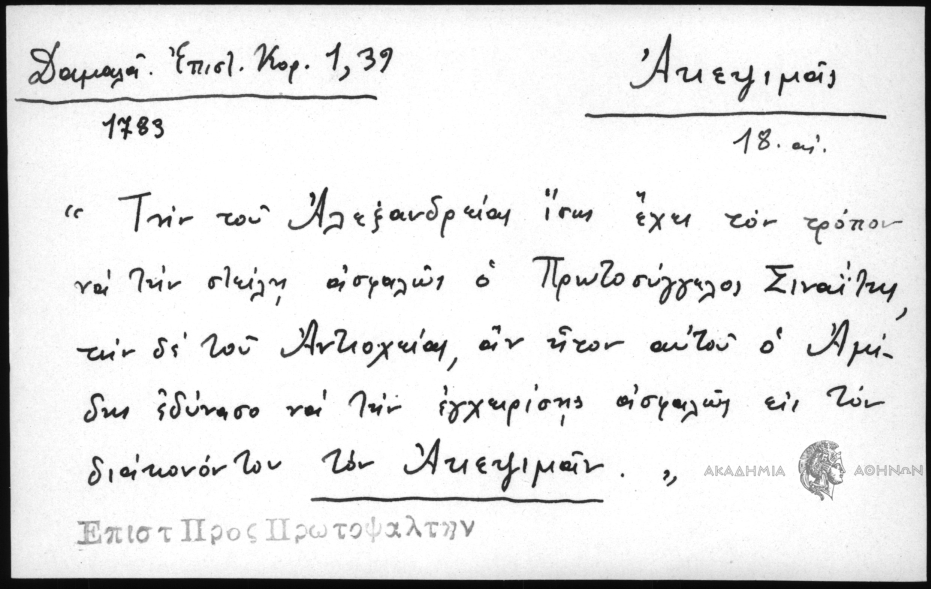 Δαμαλᾶ. Ἐπιστ. Κορ. 1, 39
1783
Ἀκεψιμᾶς
18. αἰ.
“ Τὴν τοῦ Ἀλεξανδρείας ἴσως ἔχει τὸν τρόπον
νά τὴν στείλῃ ἀσφαλῶς ὁ Πρωτοσύγγελος Σιναΐτης,
τὴν δέ τοῦ Ἀντιοχείας, ἄν ἦτον αὐτοῦ ὁ Ἀμί-
δης ἐδύνασο νά τὴν ἐγχειρίσῃς ἀσφαλῶς εἰς τὸν
διάκονόν του τὸν Ἀκεψιμᾶν. „
ΑΚΑΔΗΜΙΑ ΑΘΗΝΩΝ
Επιστ Προς Πρωτοψαλτην